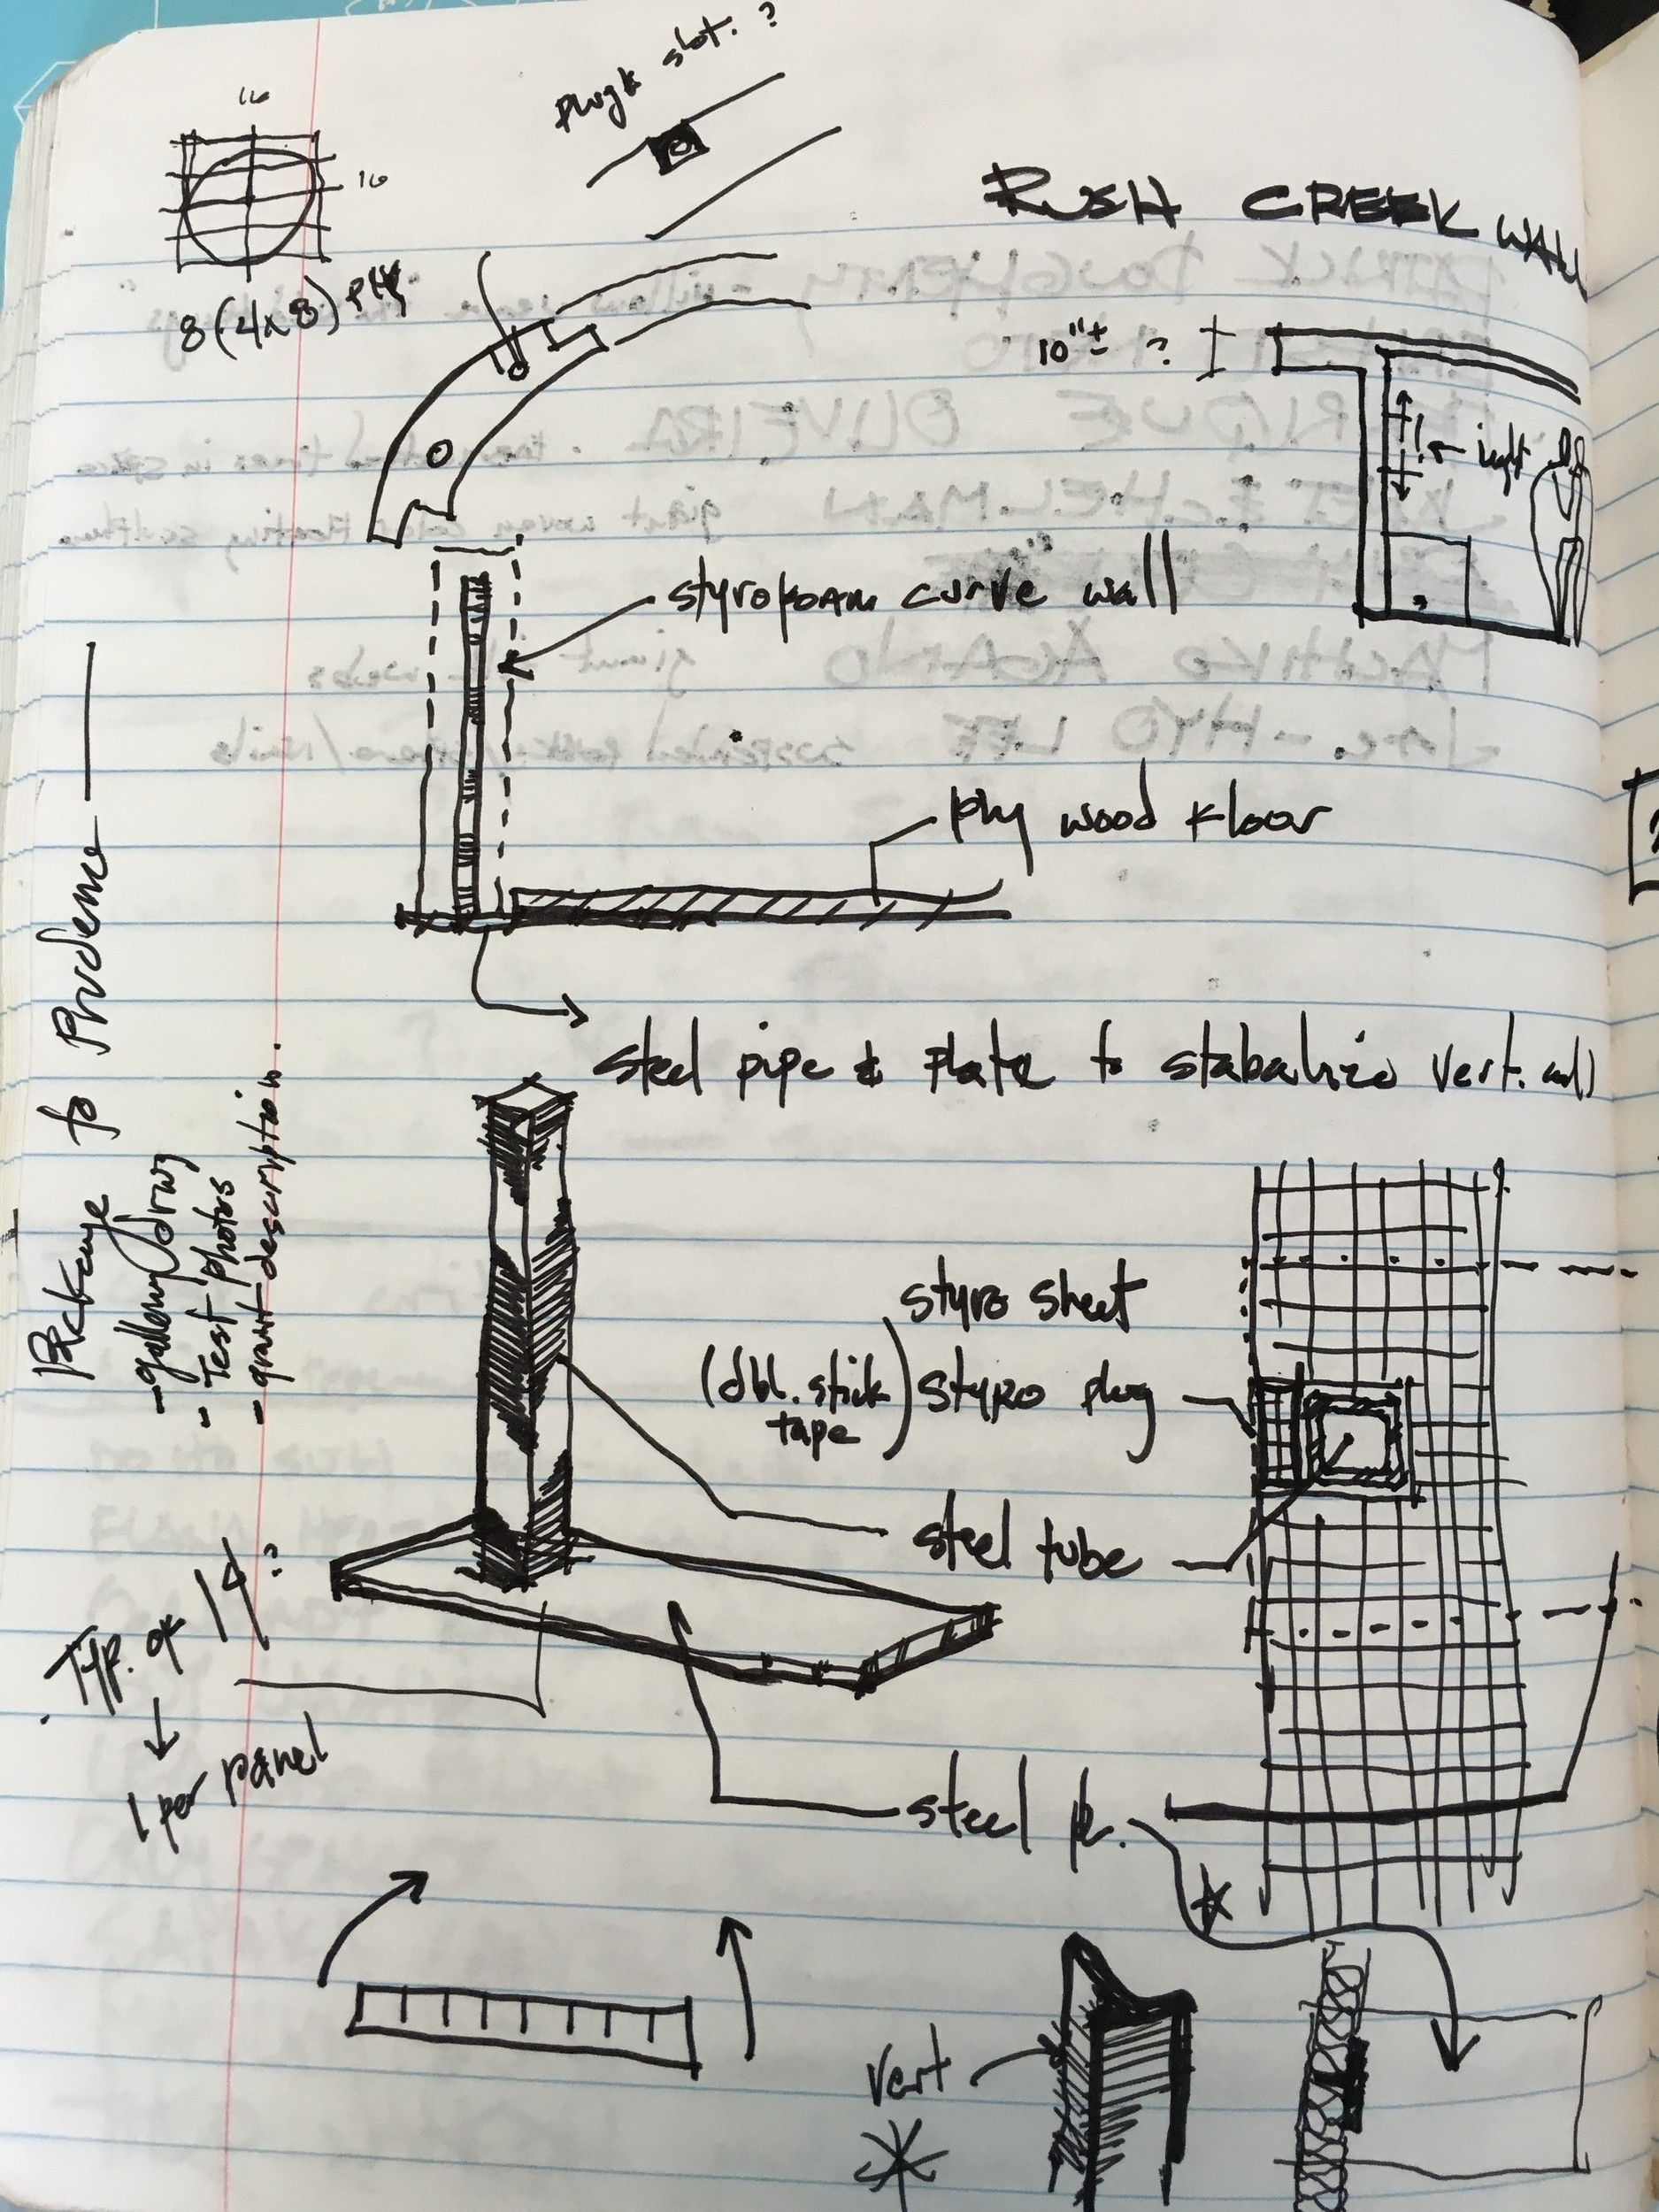 Plug & slot. ?
16
16
8 (4x8) ply
RUSH CREEK WALL
10"± ?
light
styrofoam curve wall
ply wood floor
steel pipe & plate to stabalize vert. wall
Package to Prudence
- gallery drwg
- Test photos
- grant description.
styro sheet
(dbl. stick tape) styro plug
steel tube
Typ. of 14?
1 per panel
steel pl.
vert